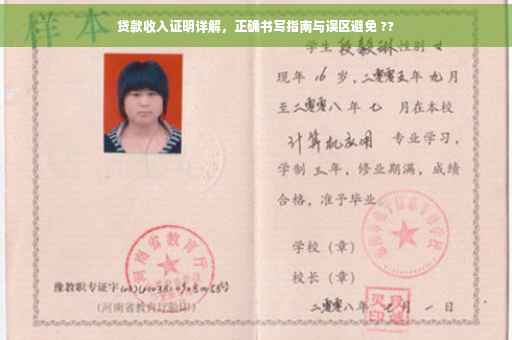 贷款收入证明详解，正确书写指南与误区避免 ??
样本
学生 段毅琳 性别 女
现年 16 岁，二零零五年 九 月
至二零零八年 七 月在本校
计算机应用 专业学习，
学制 三 年，修业期满，成绩
合格，准予毕业
学校（章）
校长（章）
二零零八年 月 一 日
河南省教育厅
豫教职专证字
(河南省教育厅验印)